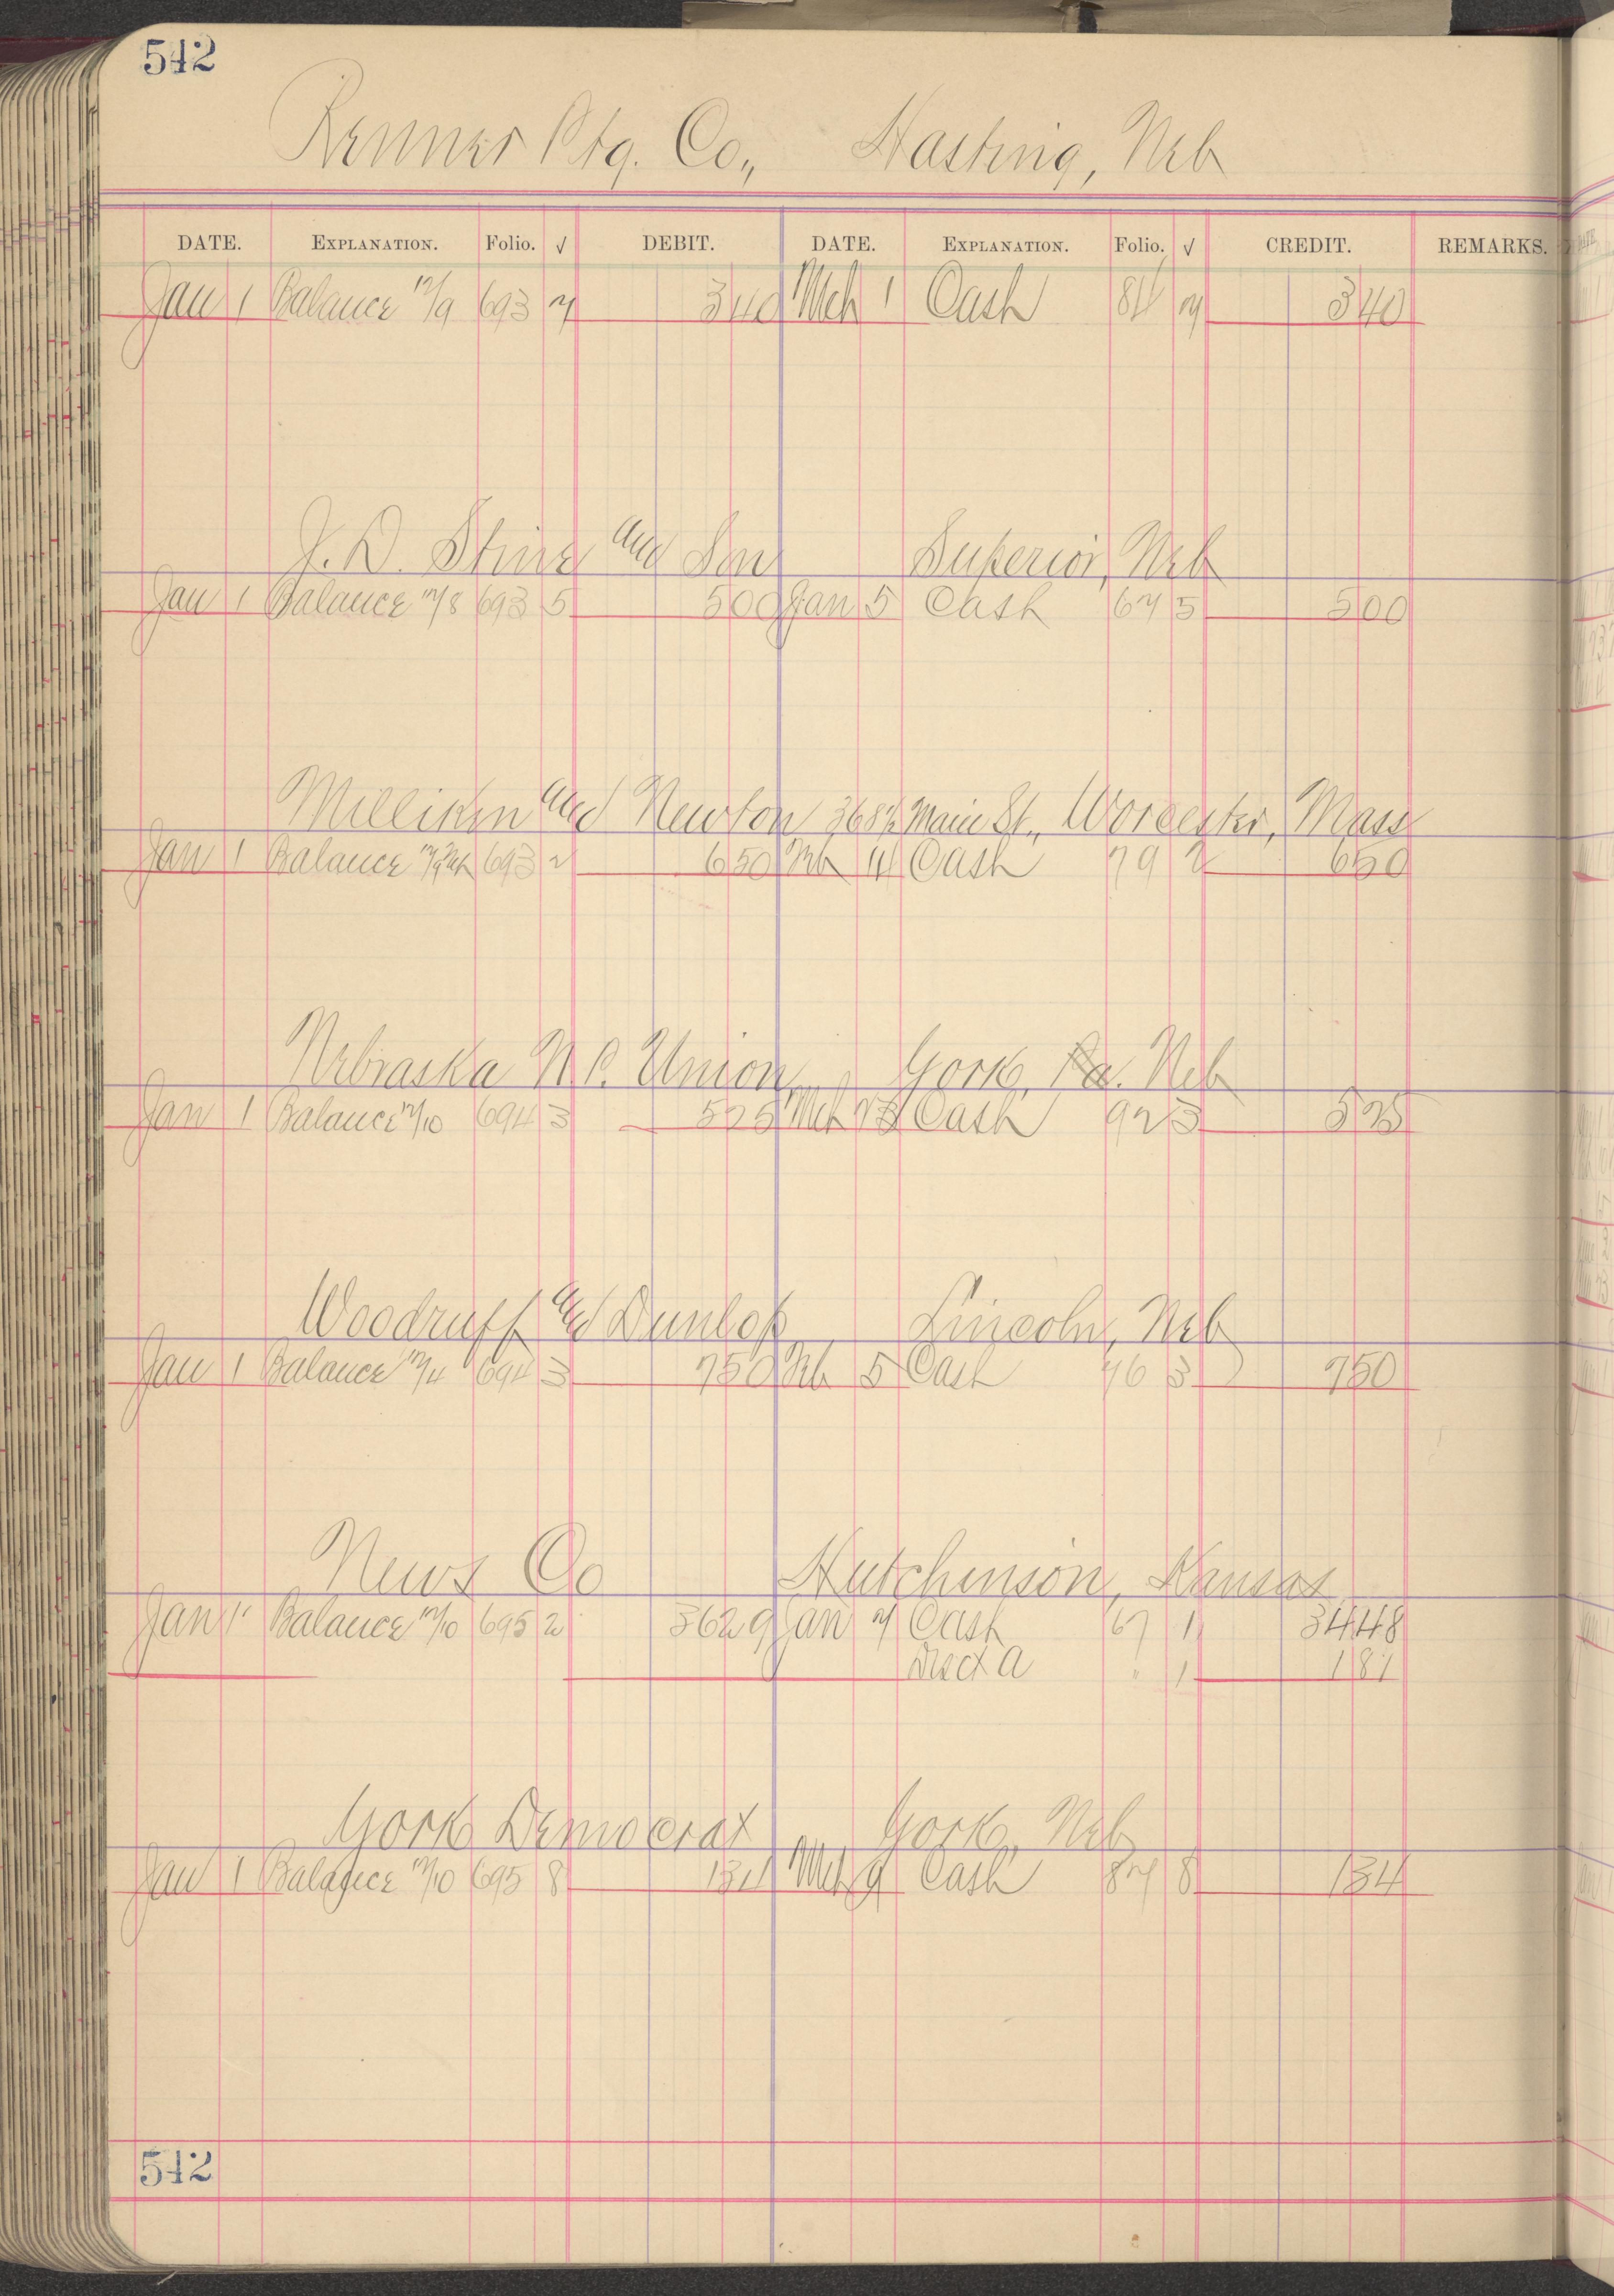 542
Renner Ptg. Co., Hasting, Neb
DATE. EXPLANATION. Folio. √ DEBIT. DATE. EXPLANATION. Folio. √ CREDIT. REMARKS.
Jan 1 Balance 12/9 693 340 Mch 1 Cash 340
J. D. Stine and Son Superior, Neb
Jan 1 Balance 12/8 693 5 500 Jan 5 Cash 67 5 500
Milliken and Newton 368½ Main St., Worcester, Mass
Jan 1 Balance 693 2 650 Feb 14 Cash 79 2 650
Nebraska N. P. Union York, Pa. Neb
Jan 1 Balance 12/10 694 3 525 Mch 23 Cash 92 3 525
Woodruff and Dunlop Lincoln, Neb
Jan 1 Balance 12/4 694 3 750 Feb 5 Cash 76 3 750
News Co Hutchinson, Kansas
Jan 1 Balance 12/10 695 2 3629 Jan 7 Cash 67 1 3448
Disct a " 1 181
York Democrat York, Neb
Jan 1 Balance 12/10 695 8 134 Mch 9 Cash 87 8 134
542